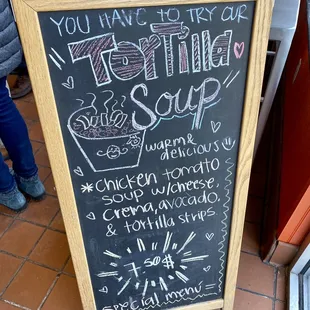 YOU HAVE TO TRY OUR
TORTILLA
SOUP
WARM &
delicious
* CHICKEN TOMATO
SOUP W/CHEESE,
CREMA, AVOCADO,
& TORTILLA STRIPS
7.50$
special MENU